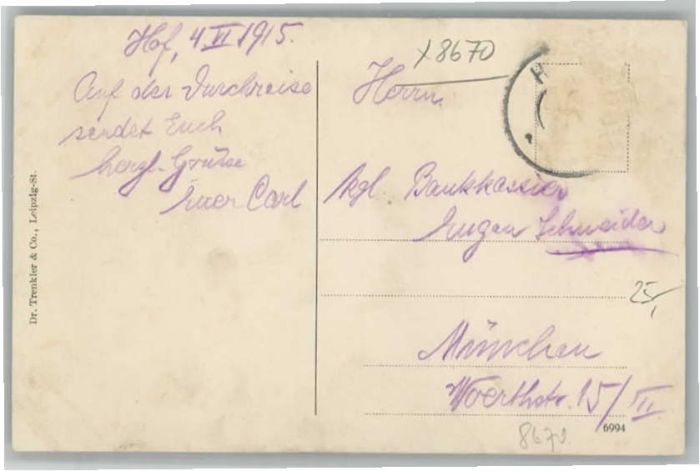 Hof, 4 VI 1915.
Auf der Durchreise
sendet Euch
herzl. Grüße
Euer Carl
x8670
Herrn
kgl. Bankkassier
Eugen Schneider
25,
München
Woerthstr. 15/III
8670
6994
Dr. Trenkler & Co., Leipzig-St.
H